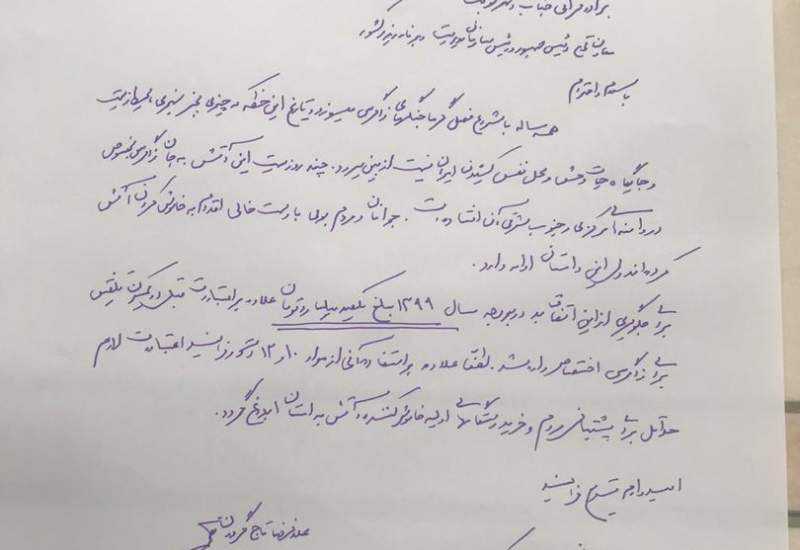 برادر گرامی جناب دکتر نوبخت
معاون محترم رئیس جمهور و رئیس سازمان مدیریت و برنامه ریزی کشور
با سلام و احترام
همه ساله با شروع فصل گرما جنگلهای زاگرس میسوزد و تاریخ این خطه که چیزی بجز سرسبزی،
و جایگاه حیات وحش و محل نفس کشیدن ایران نیست از بین میرود. چند روزیست این آتش به جان زاگرس بخصوص
در دامنه های مرکزی و جنوب شرقی آن افتاده است. جوانان و مردم بومی با دست خالی اقدام به خاموش کردن آتش
کرده اند ولی این داستان ادامه دارد.
برای جلوگیری از این اتفاق بد در بودجه سال ۱۳۹۹ مبلغ یکصد میلیارد تومان علاوه بر اعتبارات قبل در کمیسیون تلفیق
برای زاگرس اختصاص داده شد. لطفا علاوه بر استفاده آنی از مواد ۱۰ و ۱۲ دستور فرمائید اعتبارات لازم
حداقل برای پشتیبانی مردم و خرید دستگاههای اولیه خاموش کننده آتش به استان ابلاغ گردد.
امیدوارم تسریع فرمائید
غلامرضا تاج گردون